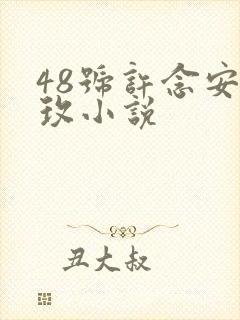 48號許念安
玫小說
丑大叔